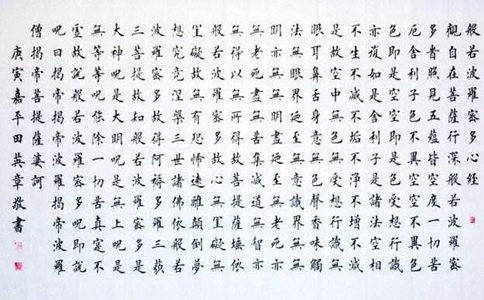 般若波羅蜜多心經
觀自在菩薩行深般若波羅蜜
多時照見五蘊皆空度一切苦
厄舍利子色不異空空不異色
色即是空空即是色受想行識
亦復如是舍利子是諸法空相
不生不滅不垢不淨不增不減
是故空中無色無受想行識無
眼耳鼻舌身意無色聲香味觸
法無眼界乃至無意識界無無
明亦無無明盡乃至無老死亦
無老死盡無苦集滅道無智亦
無得以無所得故菩提薩埵依
般若波羅蜜多故心無罣礙無
罣礙故無有恐怖遠離顛倒夢
想究竟涅槃三世諸佛依般若
波羅蜜多故得阿耨多羅三藐
三菩提故知般若波羅蜜多是
大神呪是大明呪是無上呪是
無等等呪能除一切苦真實不
虛故說般若波羅蜜多呪即說
呪曰揭帝揭帝般羅揭帝波羅
僧揭帝菩提薩婆訶
庚寅嘉平田英章敬書